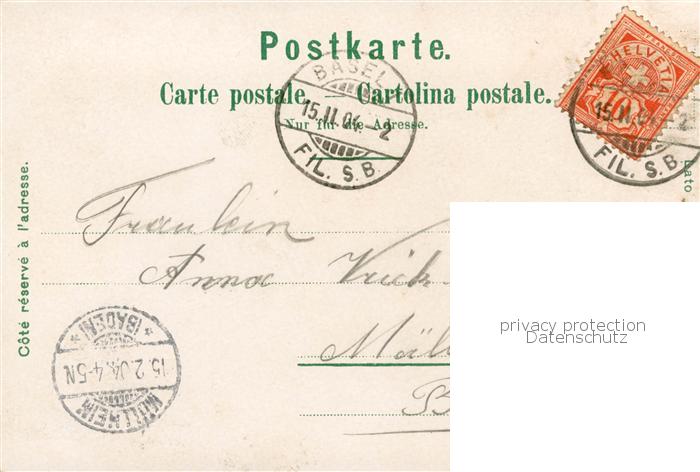 Postkarte.
Carte postale. — Cartolina postale.
Nur für die Adresse.
BASEL
15.II.04.-2
FIL. S.B.
HELVETIA
15.II.04 2
FIL. S.B.
Côté réservé à l'adresse.
Lato
Fräulein
Anna
privacy protection
Datenschutz
MÜLLHEIM
15.2.04.4-5N
* (BADEN) *